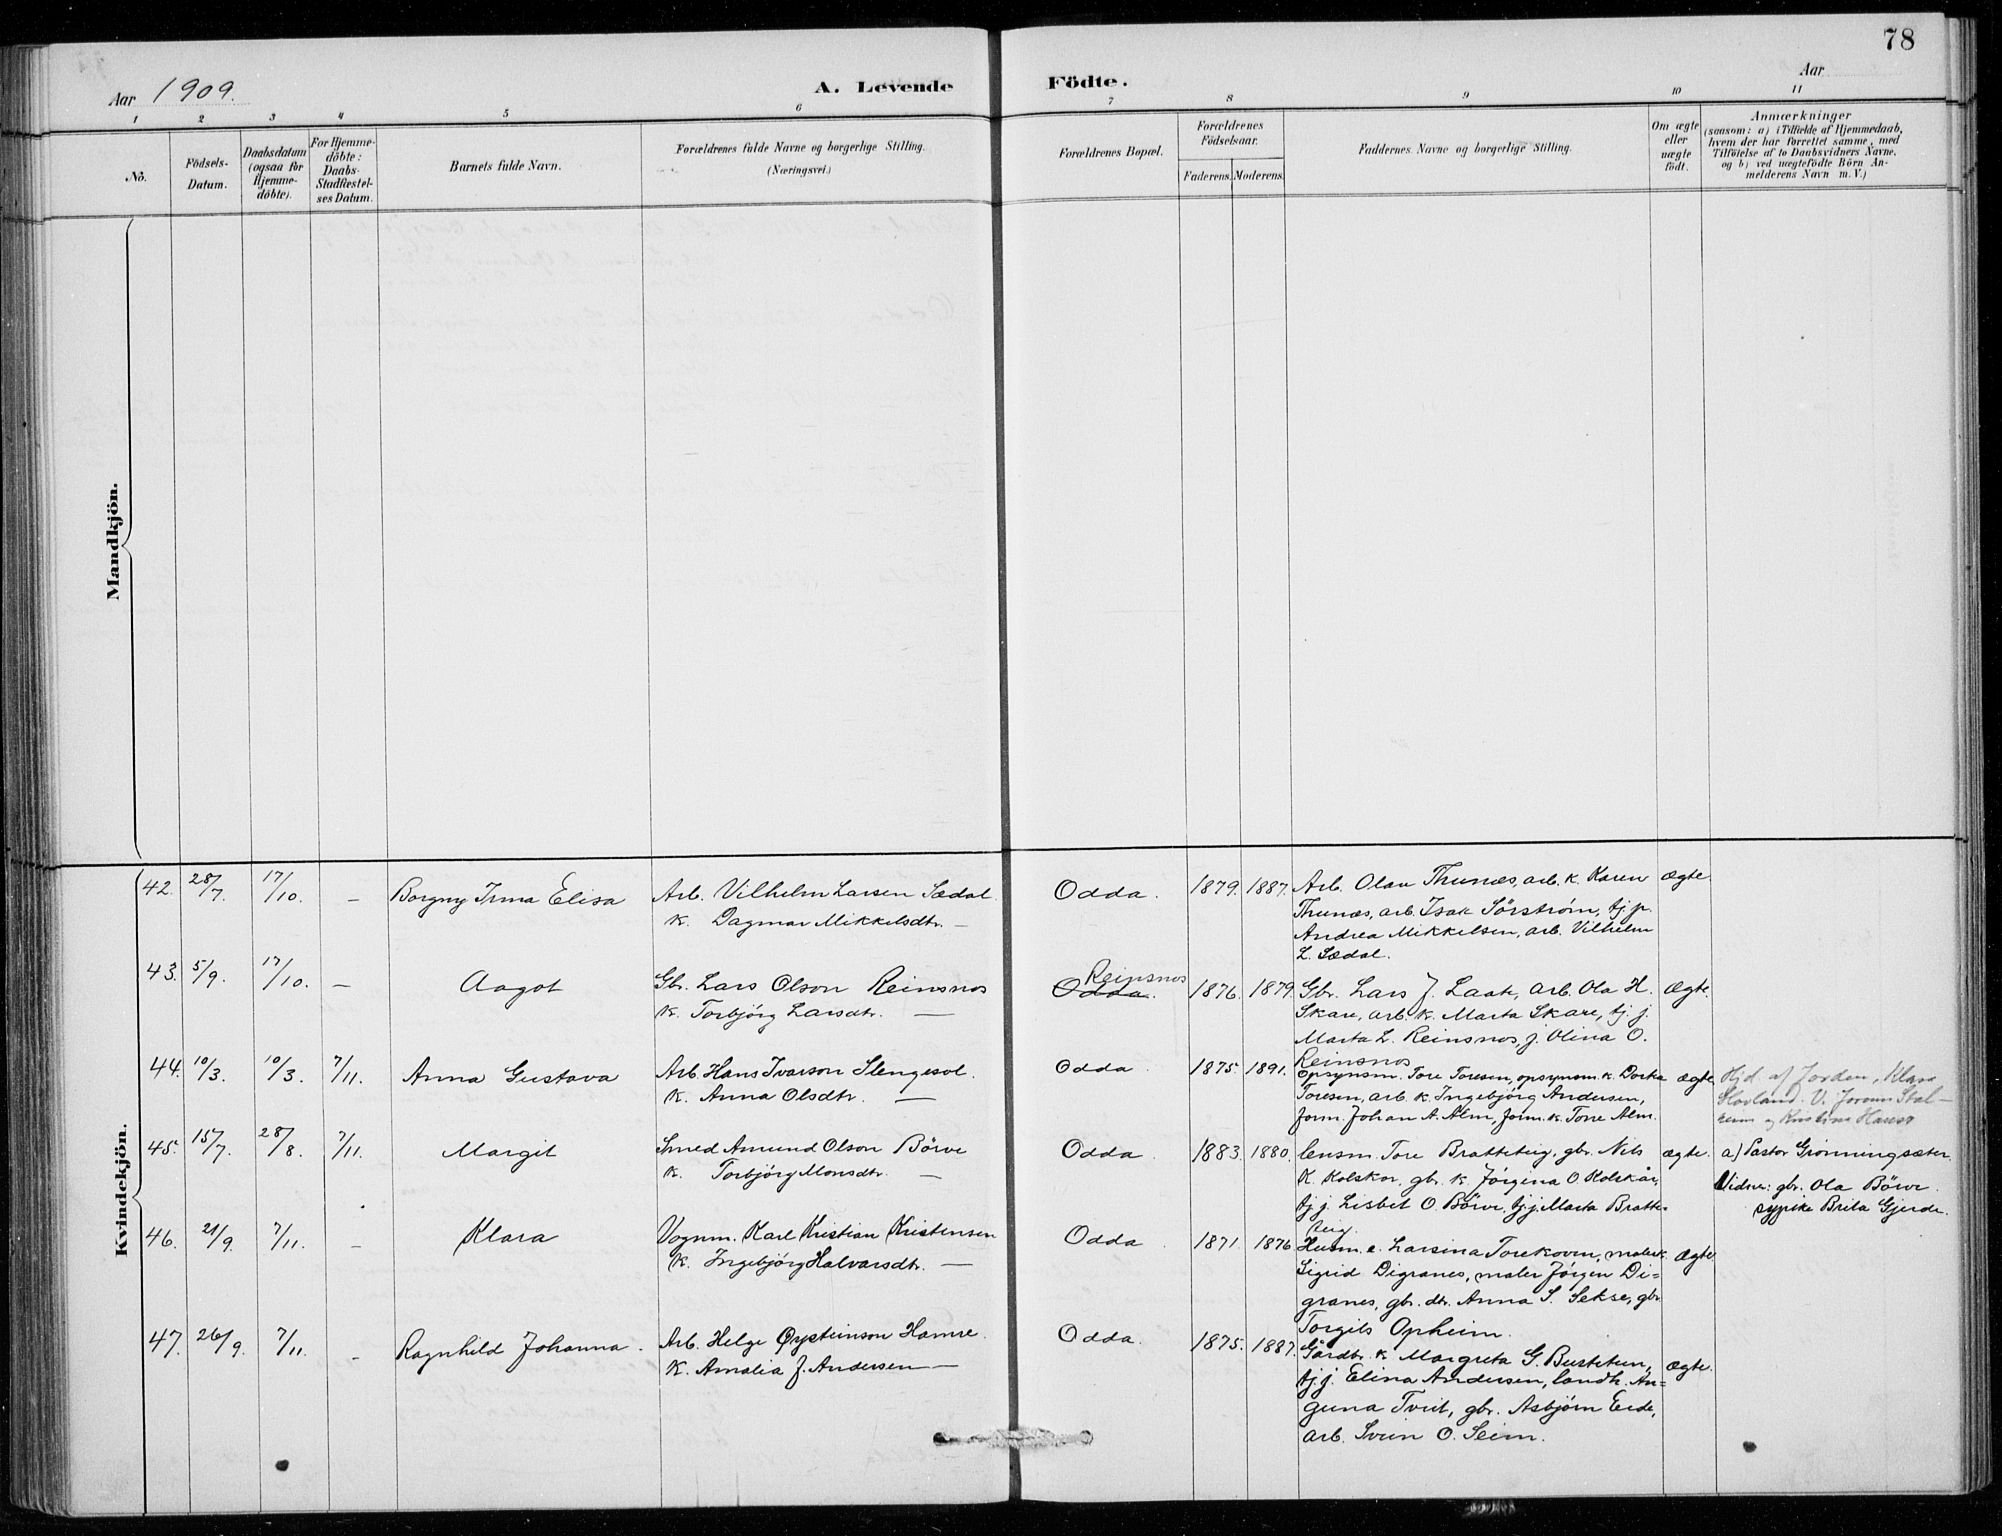 78
Aar 1909.
A. Levende Födte.
Aar
1 2 3 4 5 6 7 8 9 10 11
No.
Födsels-
Datum.
Daabsdatum
(ogsaa for
Hjemme-
döbte).
For Hjemme-
döbte:
Daabs-
Stadfæstel-
ses Datum.
Barnets fulde Navn.
Forældrenes fulde Navne og borgerlige Stilling.
(Næringsvei.)
Forældrenes Bopæl.
Forældrenes
Födselsaar.
Faderens. Moderens.
Faddernes Navne og borgerlige Stilling.
Om ægte
eller
uægte
födt.
Anmærkninger
(saasom: a) i Tilfælde af Hjemmedaab,
hvem der har forrettet samme, med
Tilföielse af to Daabsvidners Navne,
og b) ved uægtefödte Börn An-
melderens Navn m. V.)
Mandkjön.
Kvindekjön.
42. 28/7. 17/10. – Borgny Irma Elisa Arb. Vilhelm Larsen Sædal. Odda. 1879. 1887. Arb. Olav Thunæs, arb. k. Karen ægte.
K. Dagmar Mikkelsdtr. – Thunæs, arb. Isak Sörström, tj. p.
Andrea Mikkelsen, arb. Vilhelm
L. Sædal.
43. 5/9. 17/10. – Aagot Gbr. Lars Olson Reinsnos Reinsnos Odda. 1876. 1879. Gbr. Lars J. Laate, arb. Ola H. Ægte.
K. Torbjörg Larsdtr. – Skare, arb. k. Marta Skare, tj. j.
Marta L. Reinsnos, j. Olina O.
Reinsnos
44. 10/3. 10/3. 7/11. Anna Gustava Arb. Hans Ivarson Slengesol. Odda. 1875. 1891. opsynsm. Tore Toresen, opsynsm. k. Dorka ægte. Hjd. af Jorden, Klara
K. Anna Olsdtr. – Toresen, arb. k. Ingebjörg Andersen, Slovland. V. Jorunn Stal-
form. Johan A. Alm, form. k. Tone Alm. heim og Kristine
45. 15/7. 28/8. 7/11. Margit Smed Amund Olson Börve Odda. 1883. 1880. lensm. Tore Bratteteig, gbr. Nils ægte. a) Pastor Grönningsæter.
K. Torbjörg Monsdtr. – K. Kolskor, gbr. k. Jörgina O. Kolskår, Vidne: gbr. Ola Börve.
tj. j. Lisbet O. Börve, tj. j. Marta Bratte- sypike Brita Gjerde.
teig.
46. 21/9. 7/11. – Klara Vognm. Karl Kristian Kristensen Odda. 1871. 1876. Husm. e. Larsina Torekoven, maler k. Ægte.
K. Ingebjörg Halvarsdtr. – Sigrid Digranes, maler Jörgen Di=
granes, gbr. dtr. Anna S. Sekse, gbr.
Torgils Opheim.
47. 26/9. 7/11. – Ragnhild Johanna. Arb. Helge Øysteinson Hamre. Odda. 1875. 1887. Gårdbr. k. Margreta G. Bustetun, Ægte.
K. Amalia J. Andersen – tj. j. Elina Andersen, landh. An=
guna Tveit, gbr. Asbjörn Eide,
arb. Svein O. Seim.